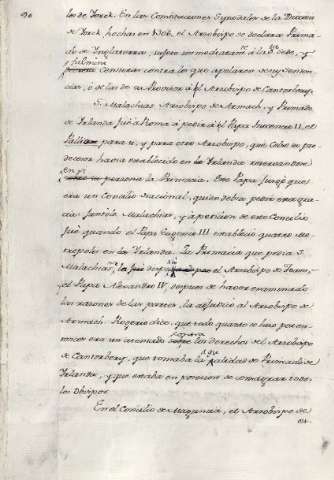 de York. En las Constituciones Synodales de la Diocesis
de York hechas en 1306, el Arzobispo se declara Prima-
do de Inglaterra, sujeto inmediatam.te a la S.ta Sede, y
fulmina Censuras contra los que apelaren de sus senten-
cias, o de las de su Provisor à el Arzobispo de Cantorbery.
S. Malachias Arzobispo de Armach, y Primado
de Irlanda fué à Roma à pedir à el Papa Inocencio II, el
Pallium para si, y para otro Arzobispo, que Celso su pre-
decesor havia establecido en la Irlanda reservandose
en su persona la Primacia. Este Papa juzgó que
era un Concilio Nacional, quien debia pedir esta gra-
cia para S. Malachias, y à peticion de este Concilio
fué quando el Papa Eugenio III estableció quatro Me-
tropolis en la Irlanda. La Primacia que poseia S.
Malachias, la disputó el Arzobispo de Toam,
y el Papa Alexandro IV, despues de haver examinado
las razones de las partes, la adjudicó al Arzobispo de
Armach. Rogerio dice, que todo quanto se hizo por en-
tonces era un atentado contra los derechos de el Arzobispo
de Cantorbery, que tomaba la calidad de Primado de
Irlanda, y que estaba en posesion de consagrar todos
los Obispos.
En el Concilio de Maguncia, el Arzobispo de